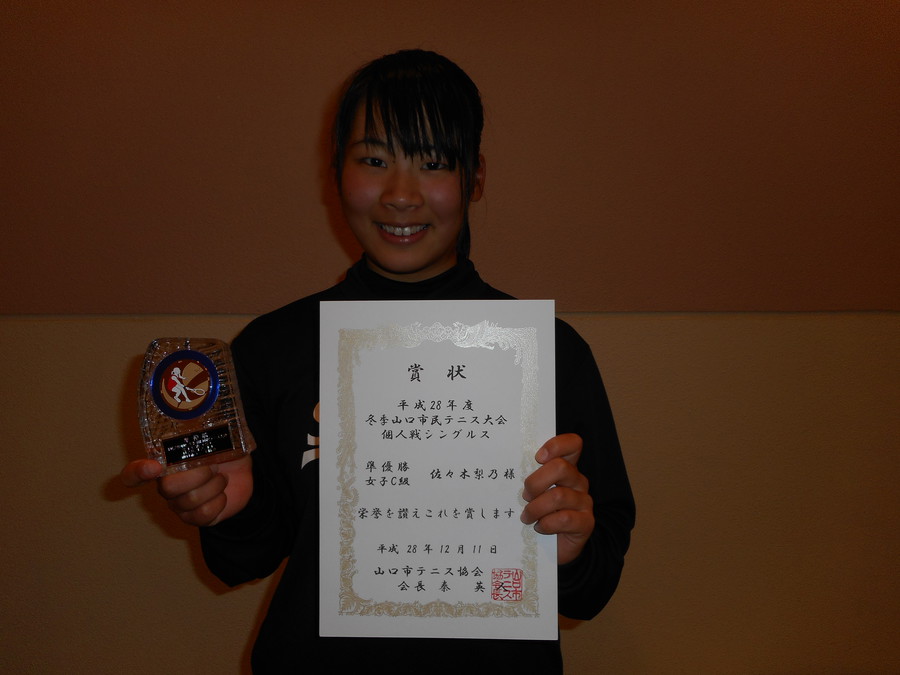 賞状
平成28年度
冬季山口市民テニス大会
個人戦シングルス
準優勝
女子C級
佐々木梨乃様
栄誉を讃えこれを賞します
平成28年12月11日
山口市テニス協会
会長 秦 英